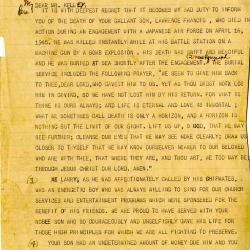 DEAR MR. KELLEY,
IT IS WITH DEEPEST REGRET THAT IT BECOMES MY SAD DUTY TO INFORM
YOU OF THE DEATH OF YOUR GALLANT SON, LAWRENCE FRANCIS, WHO DIED IN
ACTION DURING AN ENGAGEMENT WITH A JAPANESE AIR FORCE ON APRIL 16,
1945. HE WAS KILLED INSTANTLY WHILE AT HIS BATTLE STATION ON A
MACHINE GUN BY A BOMB EXPLOSION. HIS DEATH WAS SWIFT AND MERCIFUL
AND HE WAS BURIED AT SEA SHORTLY AFTER THE ENGAGEMENT. THE BURIAL
SERVICE INCLUDED THE FOLLOWING PRAYER, "WE SEEM TO GIVE HIM BACK
TO THEE, DEAR LORD, WHO GAVEST HIM TO US. YET AS THOU DIDST NOT LOSE
HIM IN GIVING, SO WE HAVE NOT LOST HIM BY HIS RETURN, FOR WHAT IS
THINE IS OURS ALWAYS; AND LIFE IS ETERNAL AND LOVE IS IMMORTAL
WHAT WE SOMETIMES CALL DEATH IS ONLY A HORIZON, AND A HORIZON IS
NOTHING BUT THE LIMIT OF OUR SIGHT. LIFT US UP, O GOD, THAT WE MAY
SEE FURTHER; CLEANSE OUR EYES THAT WE MAY SEE MORE CLEARLY; DRAW US
CLOSER TO THYSELF THAT WE MAY KNOW OURSELVES NEARER TO OUR BELOVED
WHO ARE WITH THEE, THAT WHERE THEY ARE, AND THOU ART, WE TOO MAY BE
THROUGH JESUS CHRIST OUR LORD, AMEN."
LARRY, AS HE WAS AFFECTIONATELY CALLED BY HIS SHIPMATES,
WAS AN ENERGETIC BOY WHO WAS ALWAYS WILLING TO SING FOR OUR CHURCH
SERVICES AND ENTERTAINMENT PROGRAMS WHICH WERE SPONSORED FOR THE
BENEFIT OF HIS FRIENDS. WE ARE PROUD TO HAVE SERVED WITH YOUR
SON WHO SO COURAGEOUSLY AND UNSELFISHLY GAVE HIS LIFE FOR
THOSE HIGH PRINCIPLES FOR WHICH WE ARE ALL FIGHTING TO PRESERVE.
YOUR SON HAD AN UNDETERMINED AMOUNT OF MONEY DUE HIM AND YOU